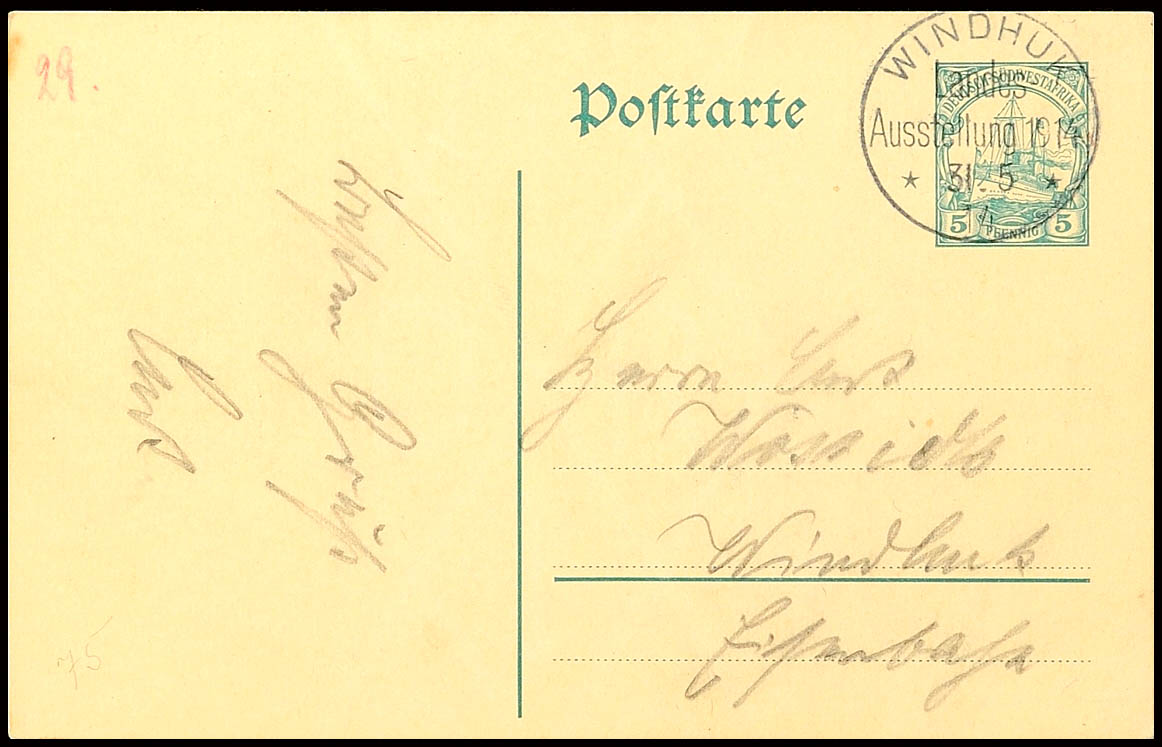 29.
Postkarte
WINDHUK
Landes
Ausstellung 1914
* 31 5 *
DEUTSCH-SÜDWESTAFRIKA
5 PFENNIG 5
Herrn Curt
Wossidlo
Windhuk
Eisenbahn
Gruß
Curt
75